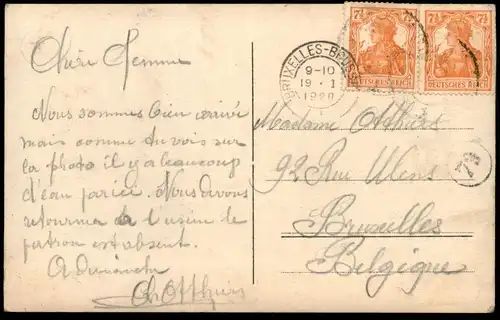 Chère Femme
Nous sommes bien arrivé
mais comme tu vois sur
la photo il y a beaucoup
d'eau par ici. Nous devons
retourner à l'usine le
patron est absent.
A Dimanche
7½ 7½
DEUTSCHES REICH
7½ 7½
DEUTSCHES REICH
BRUXELLES-BRUSSEL
9-10
19 · I
1920
Madame
92 Rue Wiens
Bruxelles
Belgique